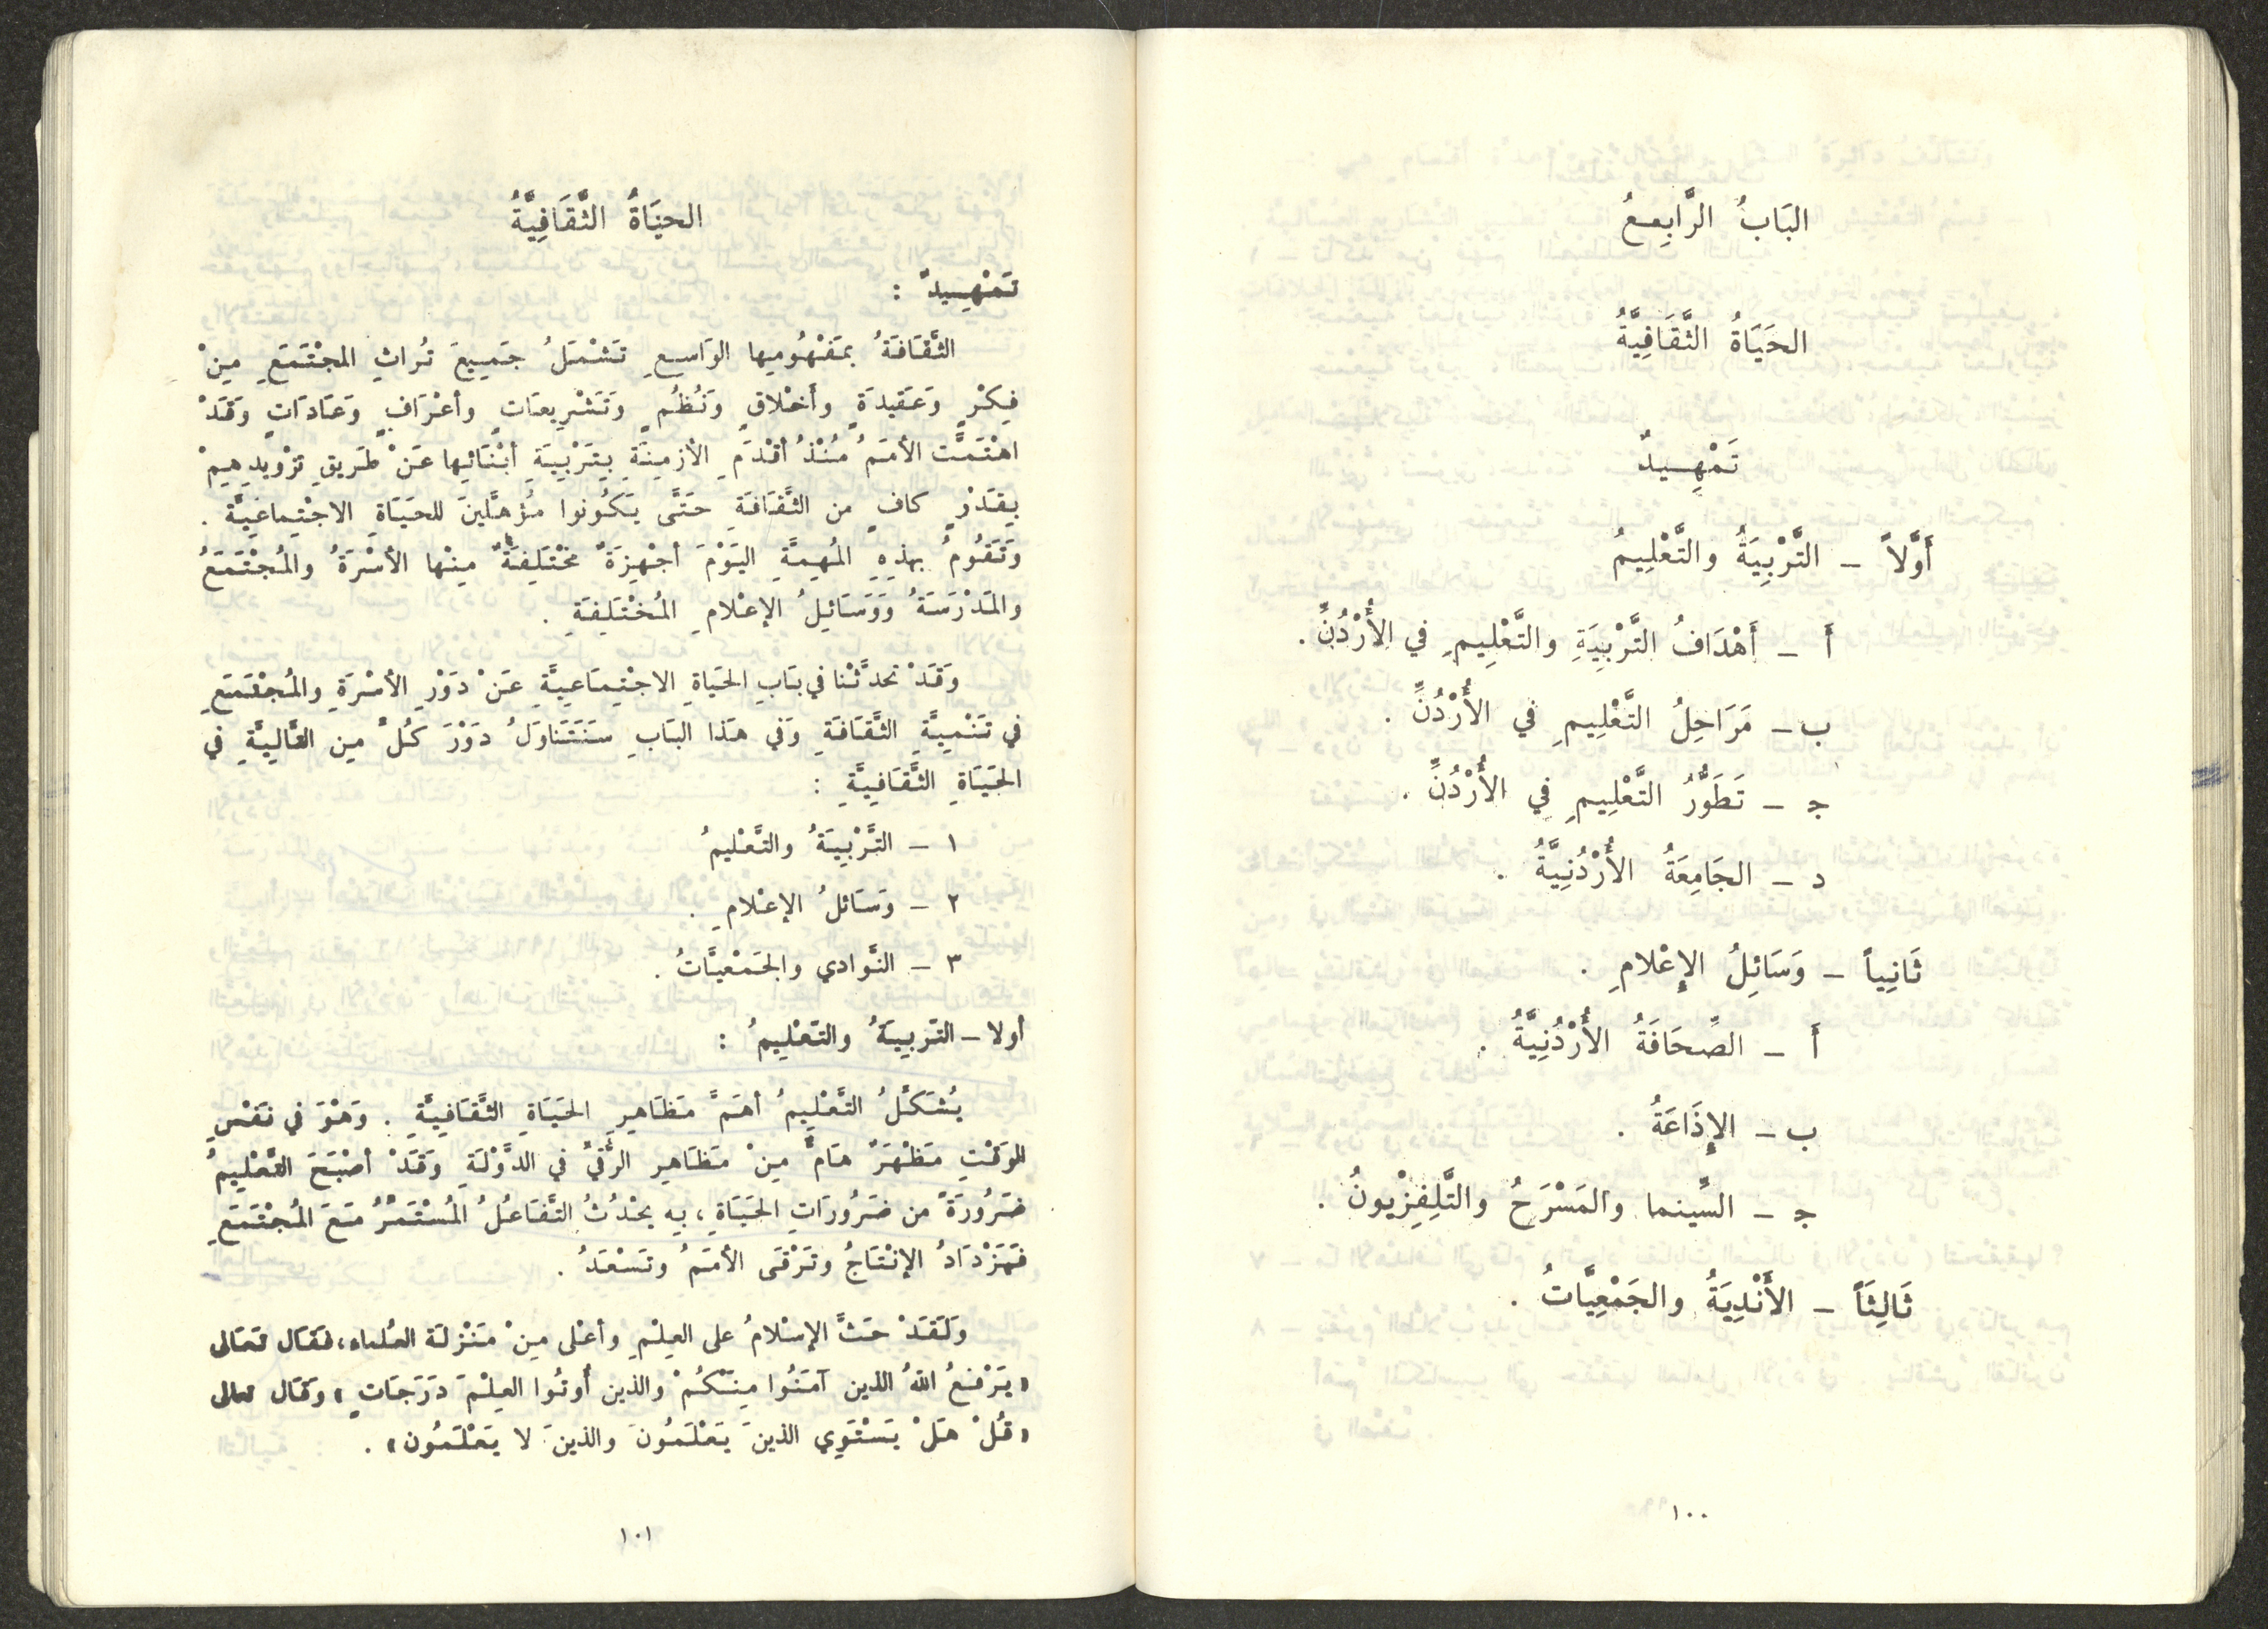 البَابُ الرَّابِعُ
الحَيَاةُ الثَّقَافِيَّةُ
تَمْهِيدٌ
أَوَّلاً – التَّرْبِيَةُ والتَّعْلِيمُ
أَ – أَهْدَافُ التَّرْبِيَةِ والتَّعْلِيمِ في الأُرْدُنِّ .
ب – مَرَاحِلُ التَّعْلِيمِ في الأُرْدُنِّ .
جـ – تَطَوُّرُ التَّعْلِيمِ في الأُرْدُنِّ .
د – الجَامِعَةُ الأُرْدُنِيَّةُ .
ثَانِياً – وَسَائِلُ الإِعْلامِ .
أَ – الصِّحَافَةُ الأُرْدُنِيَّةُ .
ب – الإِذَاعَةُ .
جـ – السِّينما والمَسْرَحُ والتَّلِفِزْيونُ .
ثَالِثَاً – الأَنْدِيَةُ والجَمْعِيَّاتُ .
١٠٠
الحيَاةُ الثَّقَافِيَّةُ
تَمْهِيدٌ :
الثَّقَافَةُ بمَفْهُومِها الوَاسِعِ تَشْمَلُ جَمِيعَ تُراثِ المجْتَمَعِ مِنْ
فِكْرٍ وَعَقِيدَةٍ وأَخْلاقٍ وَنُظُمٍ وَتَشْرِيعَاتٍ وأعْرَافٍ وَعَادَاتٍ وَقَدْ
اهْتَمَّت الأمَمُ مُنْذُ أقْدَمِ الأزمِنَةِ بِتَرْبِيَةِ أبْنَائِها عَنْ طَريقِ تزْويدِهِمْ
بِقَدْرٍ كافٍ من الثَّقَافَةِ حَتَّى يَكُونوا مُؤَهَّلينَ للحَيَاةِ الاجْتِماعِيَّة .
وَتَقُومُ بهذِهِ المُهِمَّةِ اليَوْمَ أجْهِزَةٌ مخْتَلِفَةٌ مِنْها الأسْرَةُ والمُجْتَمَعُ
والمَدْرَسَةُ وَوَسَائِلُ الإعْلامِ المُخْتَلِفَةِ .
وَقَدْ تحدَّثْنا في بَابِ الحَياةِ الاجْتِمَاعِيَّةِ عَنْ دَوْرِ الأسْرَةِ والمُجْتَمَعِ
في تَنْمِيَّةِ الثَّقَافَةِ وَفي هَذا البَابِ سَنَتَناوَلُ دَوْرَ كُلٍّ مِن التَّالِيَّةِ في
الحَيَاةِ الثَّقَافِيَّةِ :
١ – التَّرْبِيَةُ والتَّعْليمُ
٢ – وَسَائلُ الإعْلامِ .
٣ – النَّوادي والجَمْعيَّاتُ .
أولا – التّربِيَةُ والتّعْلِيمُ :
يُشَكِّلُ التَّعْلِيمُ أهَمَّ مَظَاهِرِ الحَيَاةِ الثَّقَافِيَّةِ . وَهْوَ في نَفْسِ
الوَقْتِ مَظْهَرٌ هَامٌّ مِنْ مَظَاهِرِ الرُّقيِّ في الدَّوْلَةِ وَقَدْ أصْبَحَ التَّعْلِيمُ
ضَرُورَةً من ضَرُورَاتِ الحَيَاةِ ، بِهِ يحْدُثُ التَّفَاعُلُ المُسْتَمْرُّ مَعَ المُجْتَمَعِ
فَيَزْدَادُ الإنْتَاجُ وتَرْقَى الأمَمُ وتَسْعَدُ .
وَلَقَدْ حَثَّ الإسْلامُ على العِلْمِ وأعْلى مِنْ مَنْزلَة العُلماء ، فَقَال تَعَالى
« يَرْفَعُ اللهُ الذين آمَنُوا مِنْكُمْ والذين أُوتُوا العِلْمَ دَرَجَاتٍ » وقَال تعالى
« قُلْ هَلْ يَسْتَوِي الذينَ يَعْلَمُونَ والذينَ لا يَعْلَمُون » .
١٠١